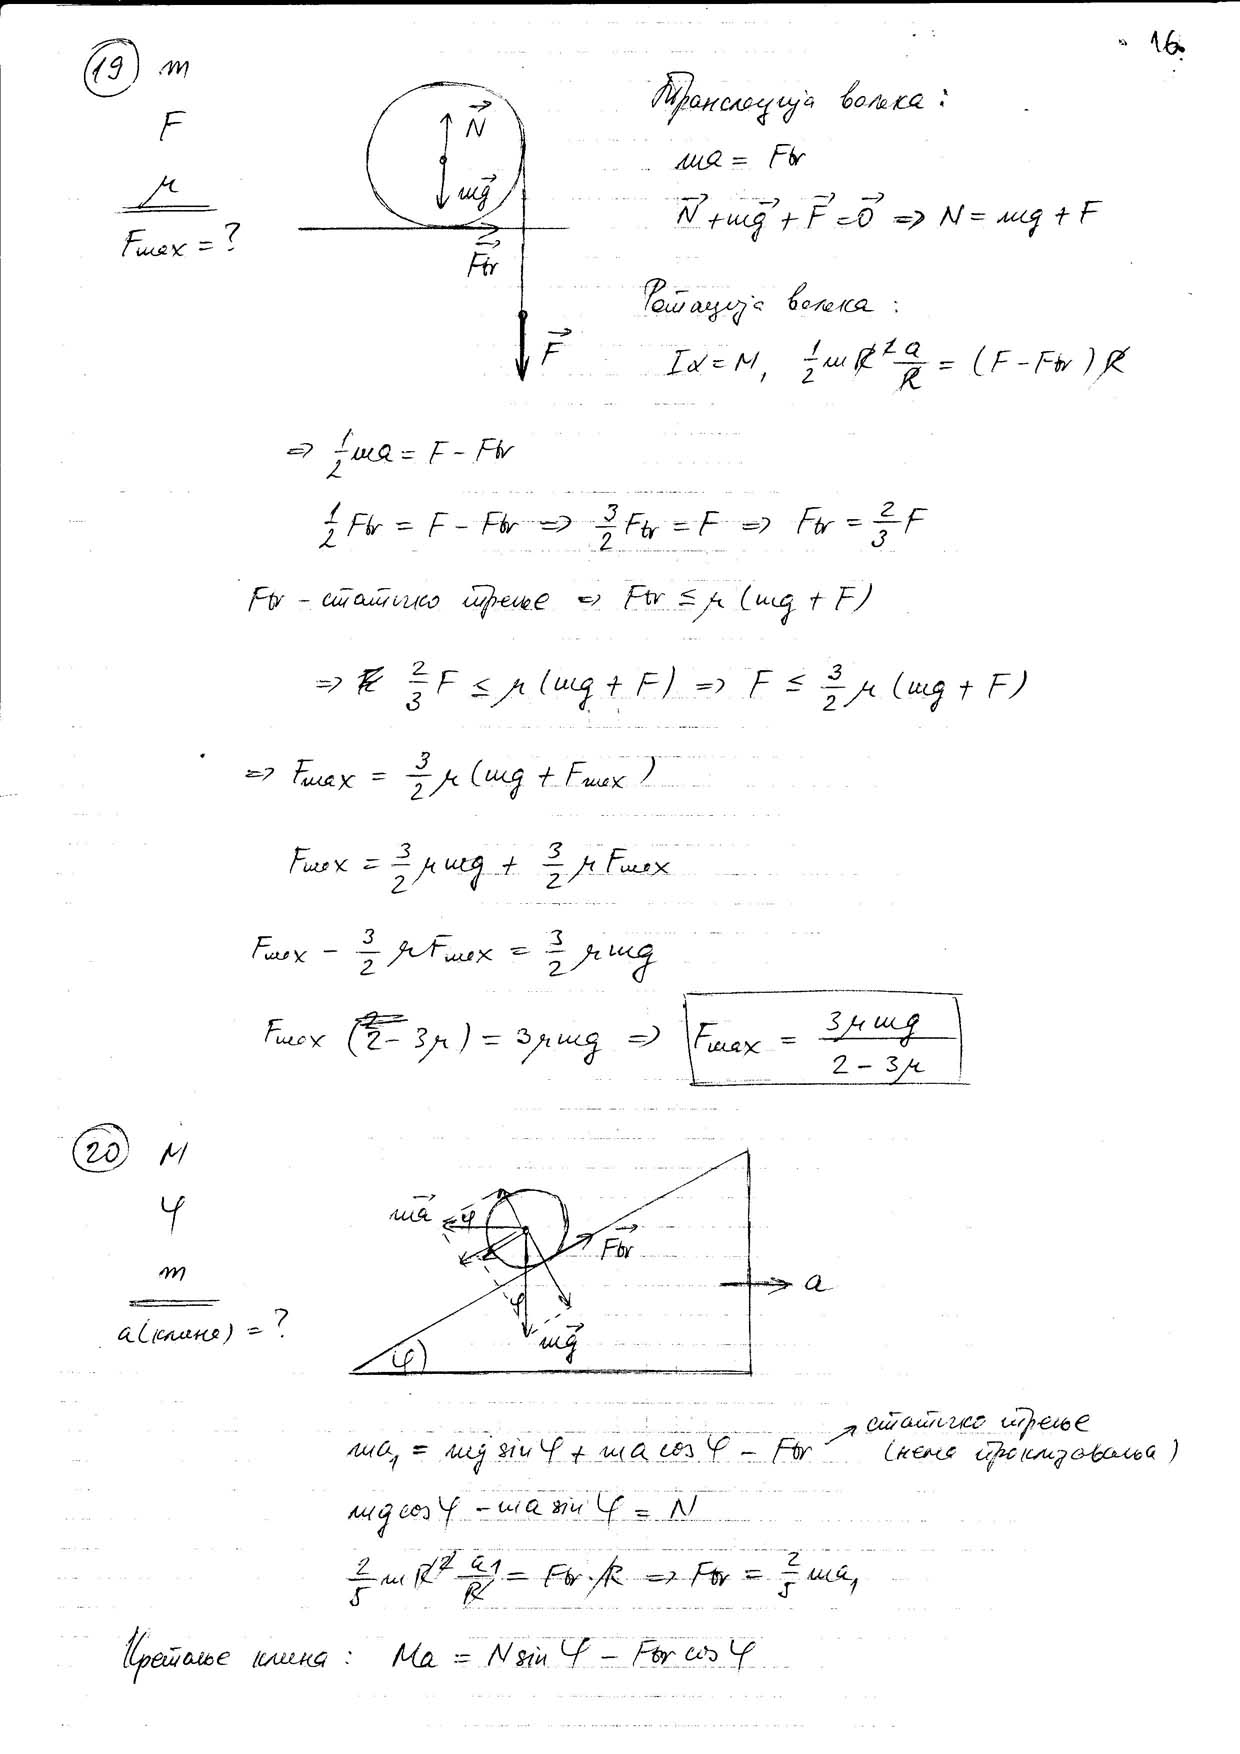 16.
(19) m
F
μ
Fmax = ?
N⃗
mg⃗
F⃗tr
F⃗
Транслација ваљка:
ma = Ftr
N⃗ + mg⃗ + F⃗ = 0⃗ ⇒ N = mg + F
Ротација ваљка:
Iα = M, 1/2 mR² a/R = (F - Ftr) R
⇒ 1/2 ma = F - Ftr
1/2 Ftr = F - Ftr ⇒ 3/2 Ftr = F ⇒ Ftr = 2/3 F
Ftr - статичко трење ⇒ Ftr ≤ μ (mg + F)
⇒ 2/3 F ≤ μ (mg + F) ⇒ F ≤ 3/2 μ (mg + F)
⇒ Fmax = 3/2 μ (mg + Fmax)
Fmax = 3/2 μmg + 3/2 μ Fmax
Fmax - 3/2 μ Fmax = 3/2 μmg
Fmax (2 - 3μ) = 3μmg ⇒ Fmax = 3μmg / (2 - 3μ)
(20) M
φ
m
a(клина) = ?
ma⃗
φ
F⃗tr
a
φ
mg⃗
φ
ma₁ = mg sin φ + ma cos φ - Ftr → статичко трење
(нема проклизавања)
mg cos φ - ma sin φ = N
2/5 mR² a₁/R = Ftr · R ⇒ Ftr = 2/5 ma₁
Кретање клина: Ma = N sin φ - Ftr cos φ